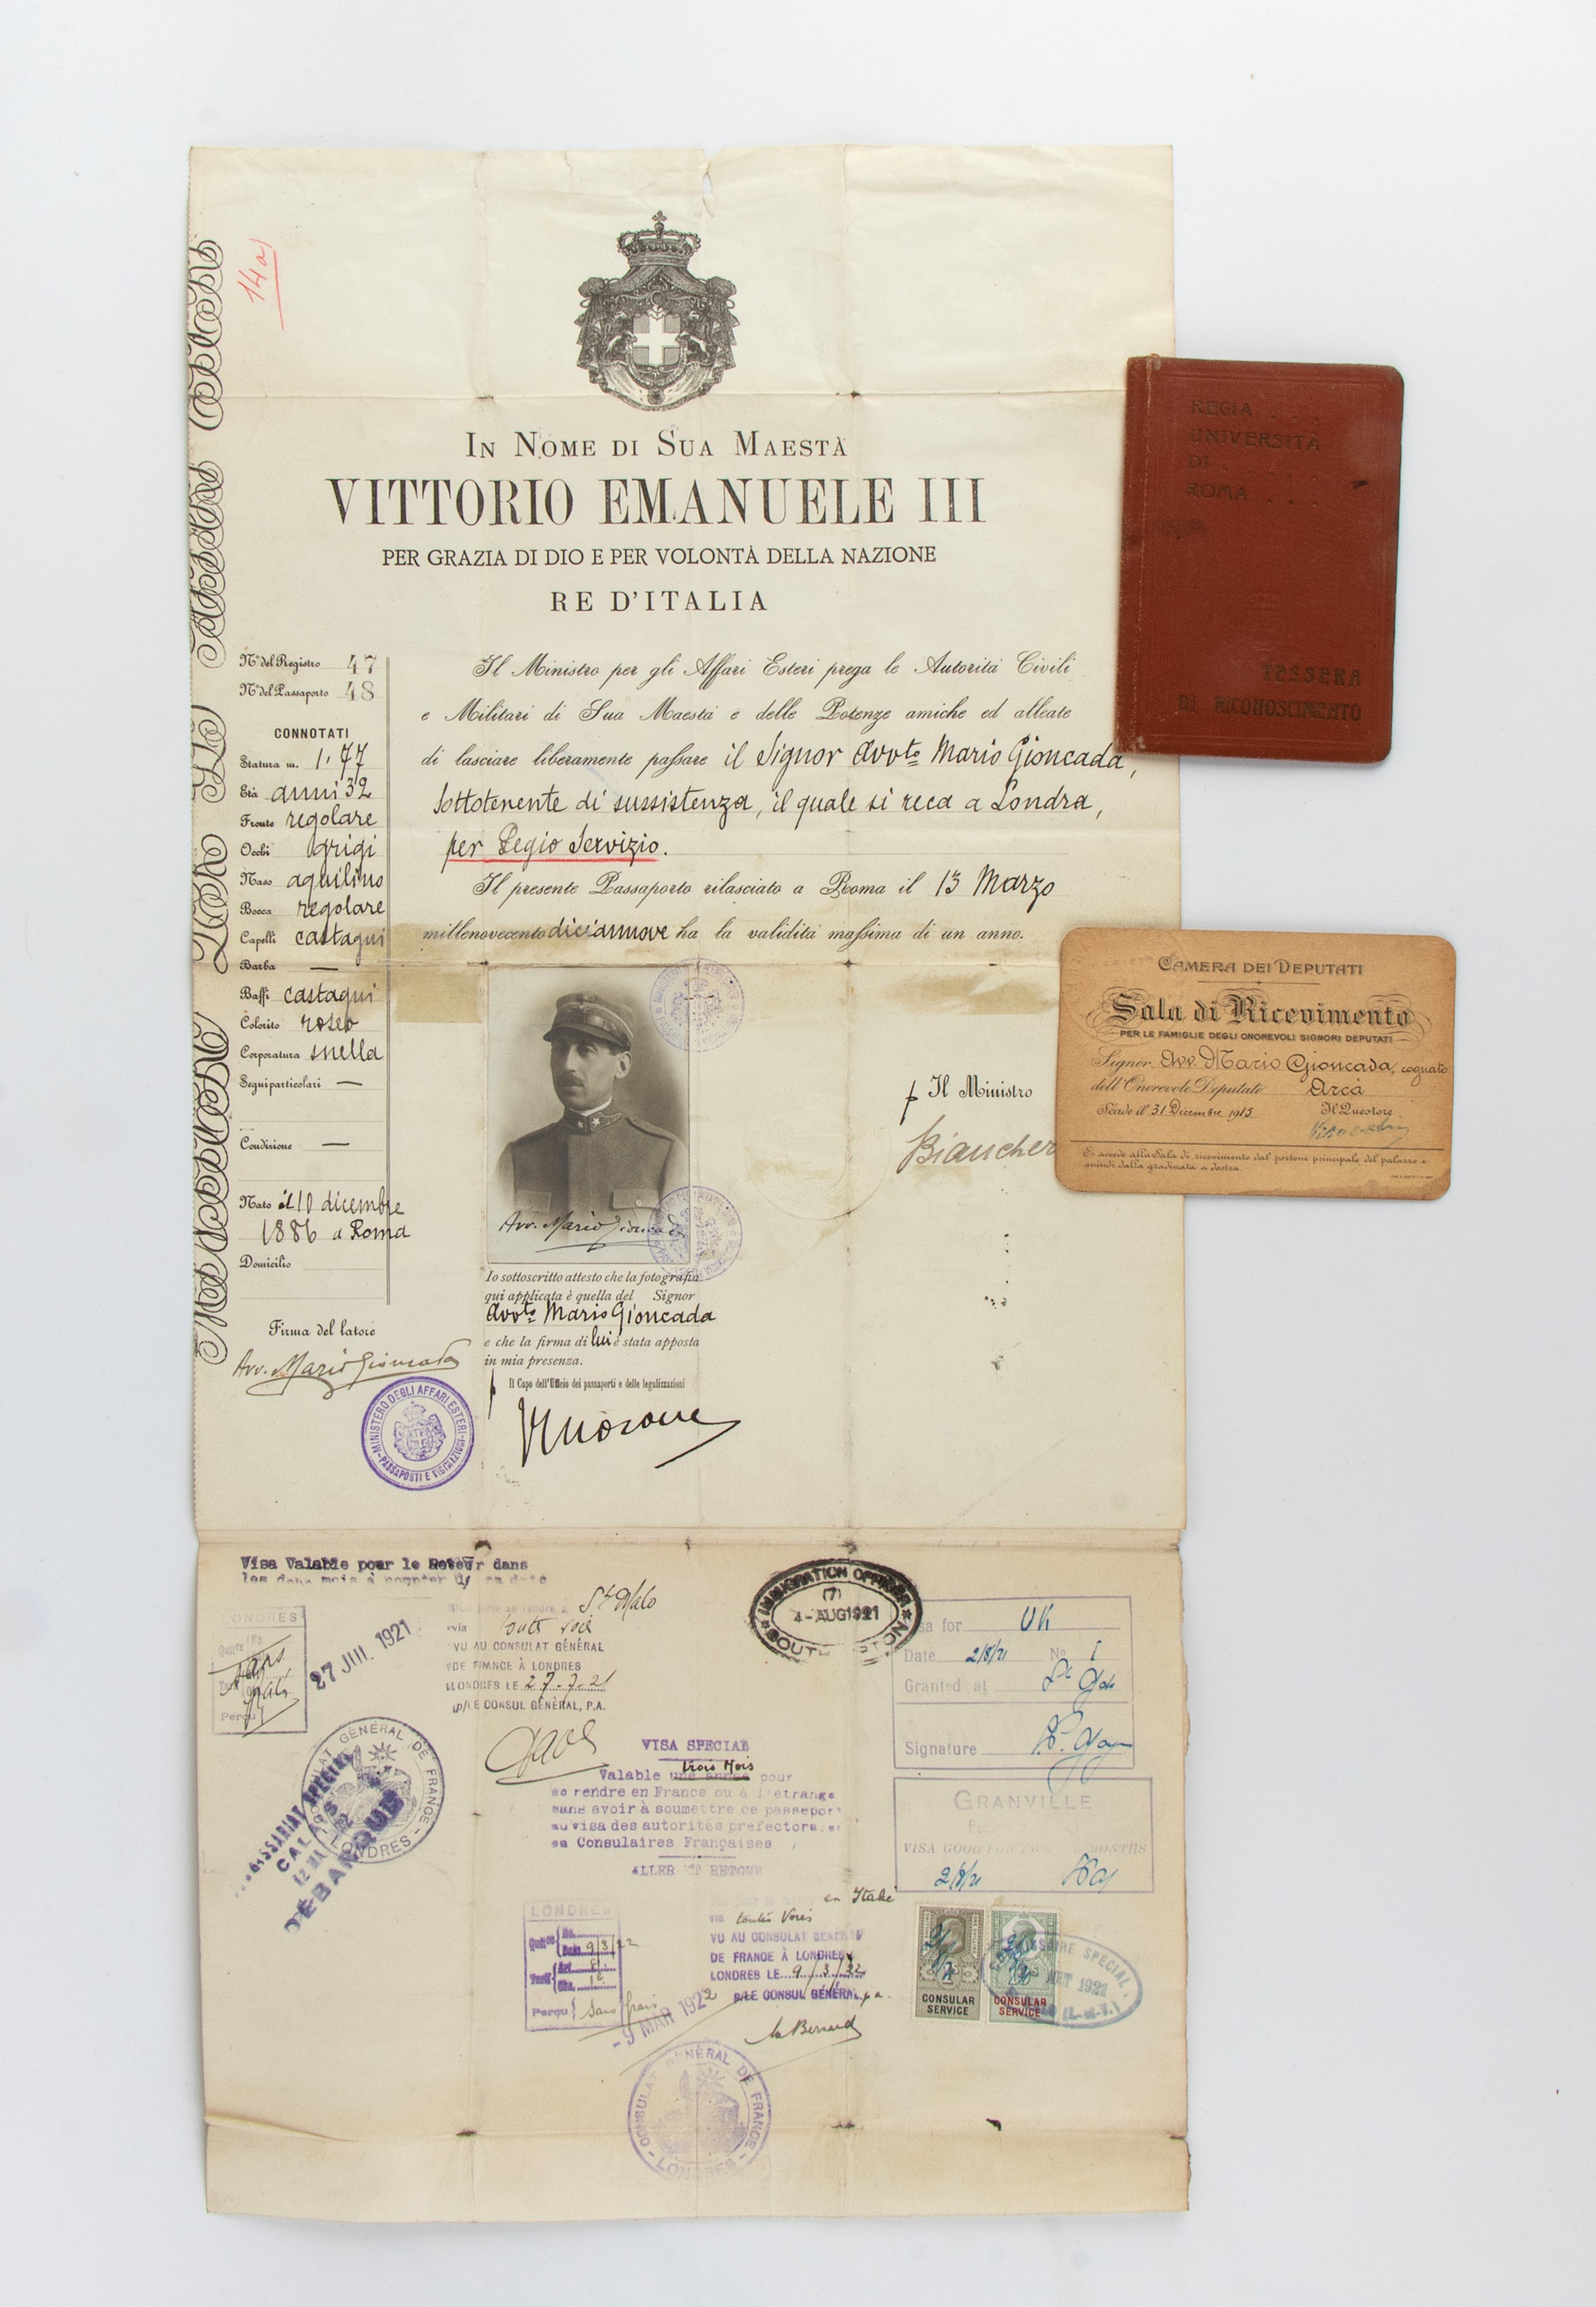 14a)
IN NOME DI SUA MAESTÀ
VITTORIO EMANUELE III
PER GRAZIA DI DIO E PER VOLONTÀ DELLA NAZIONE
RE D'ITALIA
N° del Registro 47
N° del Passaporto 48
CONNOTATI
Statura m. 1.77
Età anni 32
Fronte regolare
Occhi grigi
Naso aquilino
Bocca regolare
Capelli castagni
Barba —
Baffi castagni
Colorito roseo
Corporatura snella
Segni particolari —
Condizione —
Nato il 10 dicembre
1886 a Roma
Domicilio
Firma del latore
Avv. Mario Gioncada
MINISTERO DEGLI AFFARI ESTERI
PASSAPORTI E
Il Ministro per gli Affari Esteri prega le Autorità Civili
e Militari di Sua Maestà e delle Potenze amiche ed alleate
di lasciare liberamente passare il Signor Avvto Mario Gioncada,
sottotenente di sussistenza, il quale si reca a Londra,
per Regio Servizio.
Il presente Passaporto rilasciato a Roma il 13 Marzo
millenovecento diciannove ha la validità massima di un anno.
Avv. Mario Gioncada
Io sottoscritto attesto che la fotografia
qui applicata è quella del Signor
Avvto Mario Gioncada
e che la firma di lui è stata apposta
in mia presenza.
Il Capo dell'Ufficio dei passaporti e delle legalizzazioni
p Il Ministro
Biancher
REGIA
UNIVERSITÀ
DI
ROMA
TESSERA
DI RICONOSCIMENTO
CAMERA DEI DEPUTATI
Sala di Ricevimento
PER LE FAMIGLIE DEGLI ONOREVOLI SIGNORI DEPUTATI
Signor Avv. Mario Gioncada, cognato
dell'Onorevole Deputato Arcà
Scade il 31 Dicembre 1915 Il Questore
Si accede alla Sala di ricevimento dal portone principale del palazzo e
quindi dalla gradinata a destra.
Visa Valable pour le Retour dans
les deux mois à compter de sa date
LONDRES
Perçu
27 JUL 1921
St Malo
via toute voie
VU AU CONSULAT GÉNÉRAL
DE FRANCE À LONDRES
LONDRES LE 27.7.21
P/LE CONSUL GÉNÉRAL, P.A.
IMMIGRATION OFFICER
(7)
4 - AUG 1921
Visa for UK
Date 2/8/21 No 1
Granted at
Signature
GRANVILLE
VISA GOOD FOR TWELVE MONTHS
2/8/21
CONSULAT GÉNÉRAL DE FRANCE
LONDRES
COMMISSARIAT SPECIAL
CALAIS
DÉBARQUÉ
VISA SPECIAL
trois Mois
Valable une année pour
se rendre en France ou à l'etrange
sans avoir à soumettre ce passeport
au visa des autorités prefectorales
ou Consulaires Françaises
ALLER ET RETOUR
LONDRES
9/3/22
Perçu Sans frais
- 9 MAR 1922
en Italie
via toutes Voies
VU AU CONSULAT GENERAL
DE FRANCE À LONDRES
LONDRES LE 9/3/22
P/LE CONSUL GÉNÉRAL, p.a.
CONSULAT GÉNÉRAL DE FRANCE
LONDRES
CONSULAR
SERVICE
CONSULAR
SERVICE
COMMISSAIRE SPÉCIAL
1921